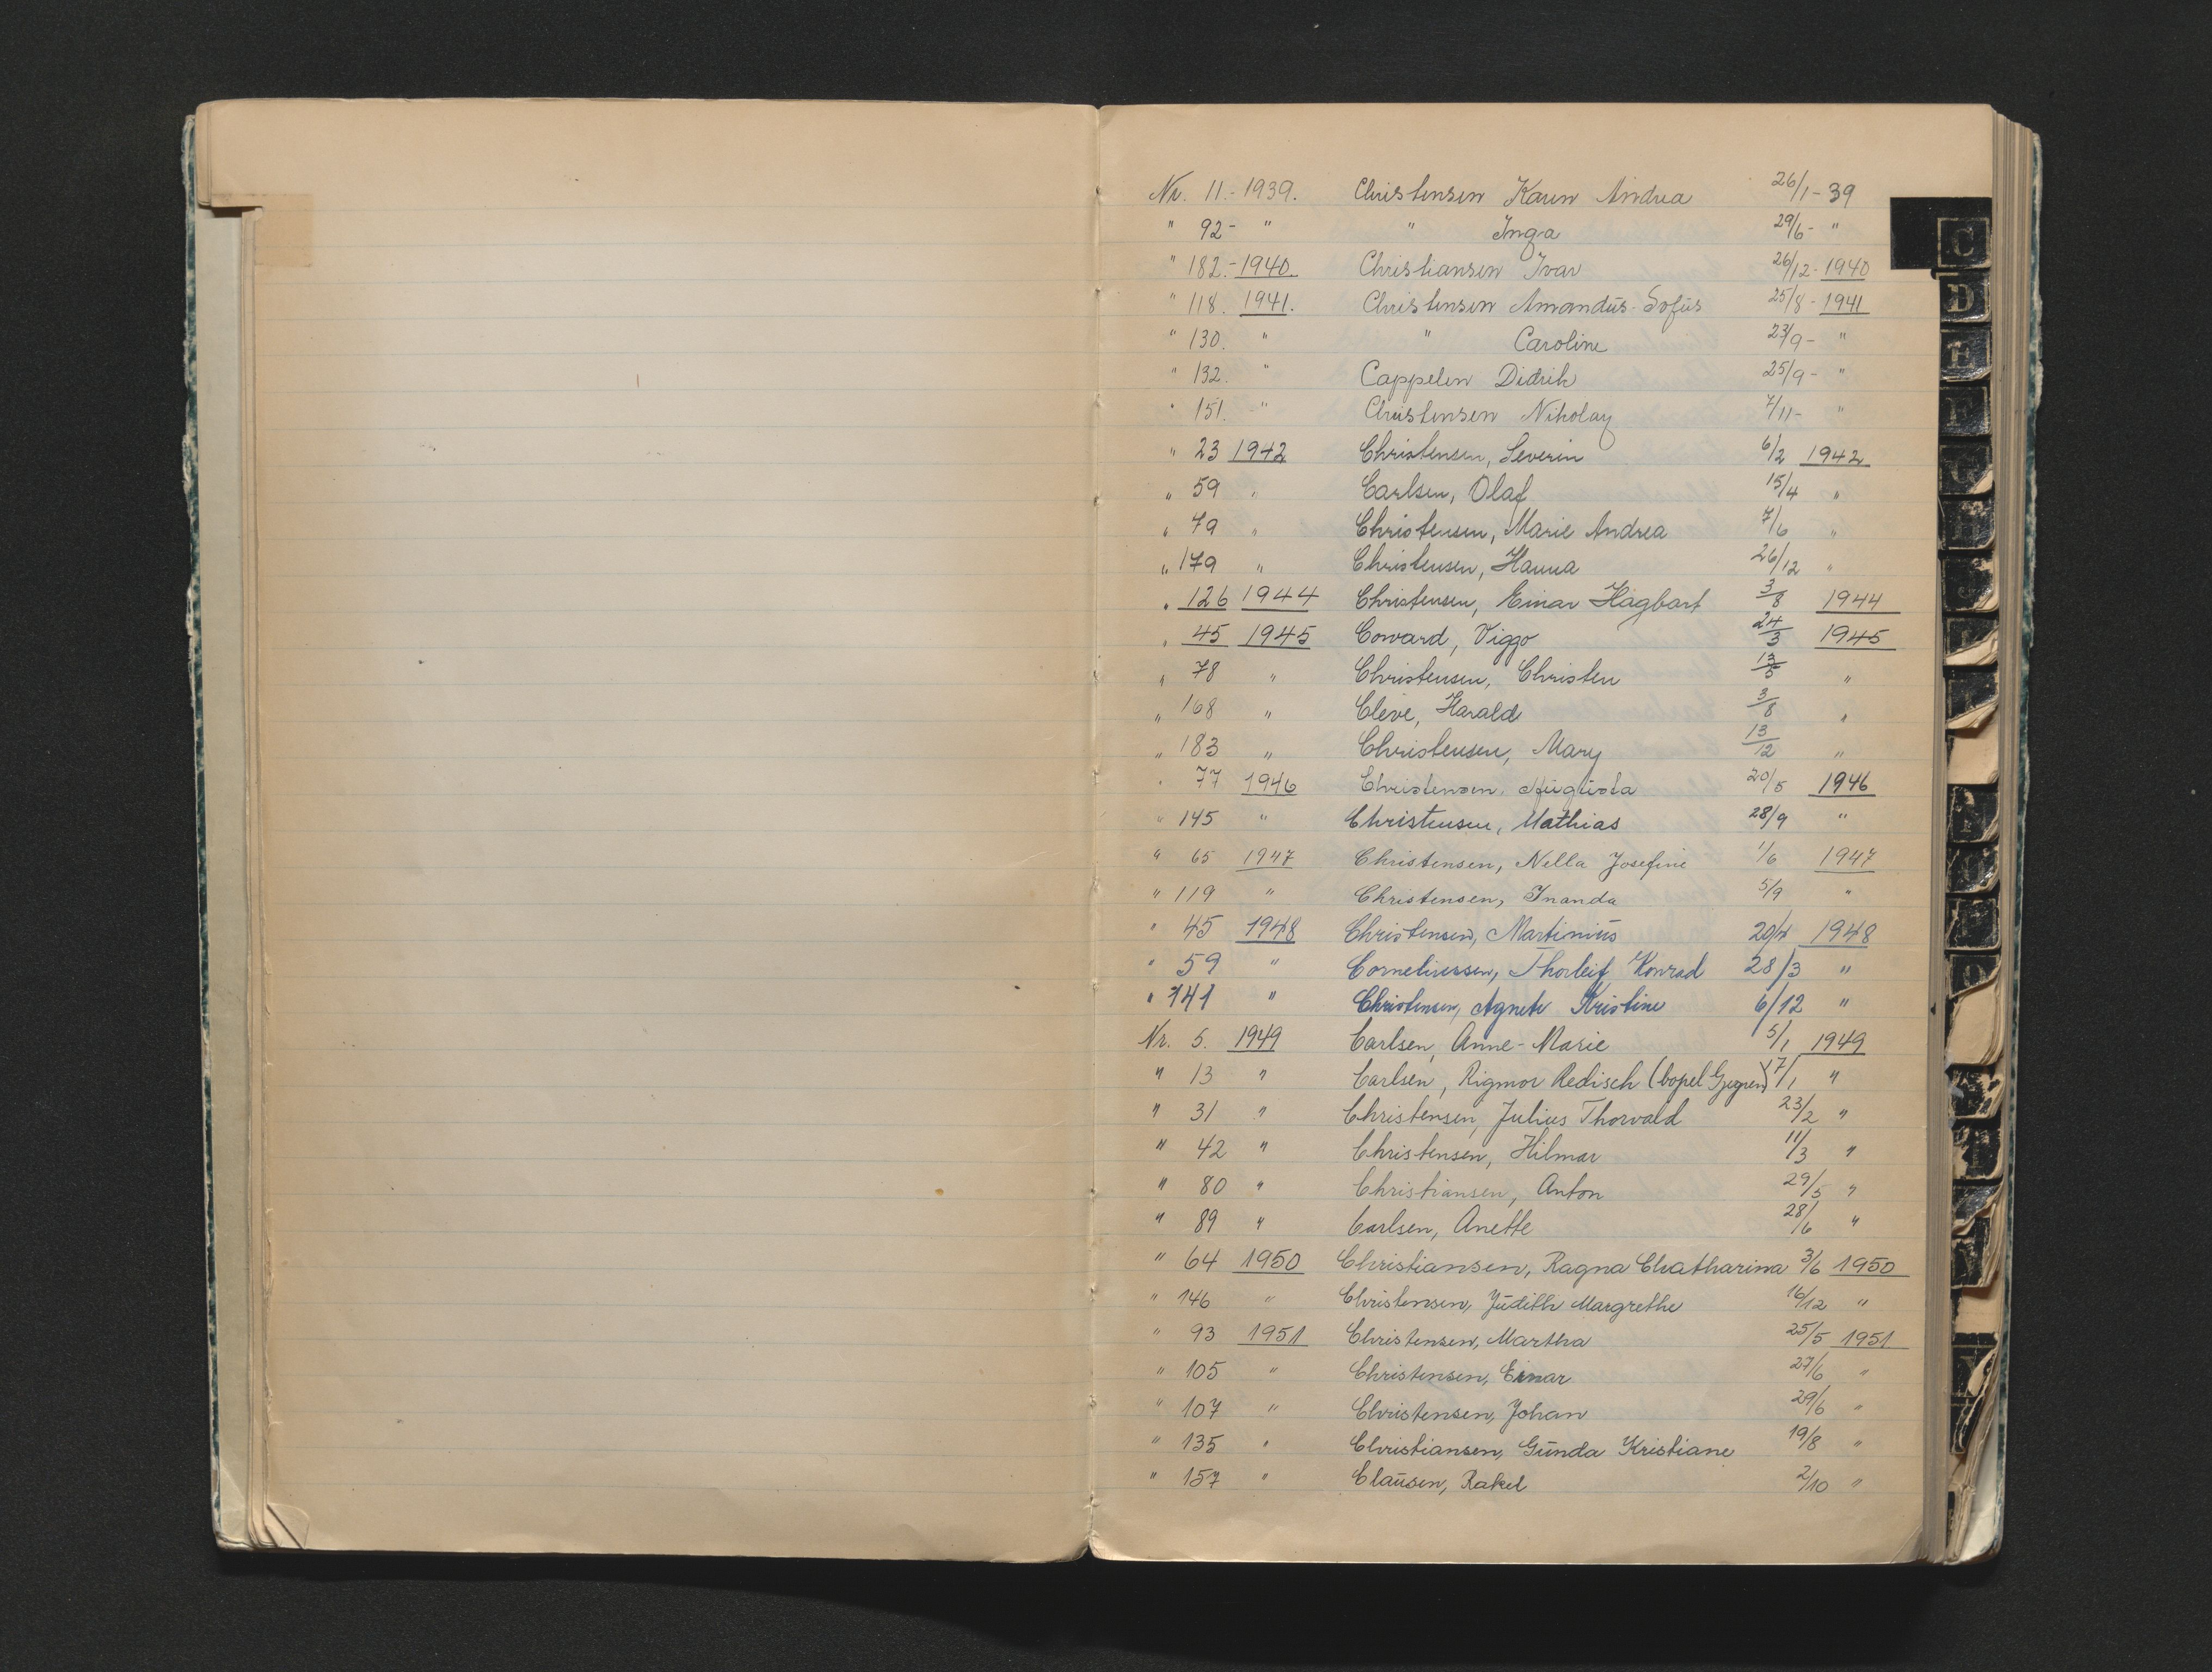 Nr. 11.- 1939. Christensen Karen Andrea 26/1-39
" 92- " " Inga 29/6- "
" 182.-1940. Christiansen Ivar 26/12-1940
" 118. 1941. Christensen Amandus-Sofus 25/8-1941
" 130. " " Caroline 23/9- "
" 132. " Cappelen Didrik 25/9- "
" 151. " Christensen Nikolay 7/11- "
" 23 1942 Christensen, Severin 6/2 1942
" 59 " Carlsen, Olaf 15/4 "
" 79 " Christensen, Marie Andrea 7/6 "
" 179 " Christensen, Hanna 26/12 "
" 126 1944 Christensen, Einar Hagbart 3/8 1944
" 45 1945 Coward, Viggo 24/3 1945
" 78 " Christensen, Christen 13/5 "
" 168 " Cleve, Harald 3/8 "
" 183 " Christensen, Mary 13/12 "
" 77 1946 Christensen, Augusta 20/5 1946
" 145 " Christensen, Mathias 28/9 "
" 65 1947 Christensen, Nella Josefine 1/6 1947
" 119 " Christensen, Inanda 5/9 "
" 45 1948 Christensen, Martinius 20/4 1948
" 59 " Corneliussen, Thorleif Konrad 28/3 "
" 141 " Christensen, Agnete Kristine 6/12 "
Nr. 5. 1949 Carlsen, Anne-Marie 5/1 1949
" 13 " Carlsen, Rigmor Redisch (bopel Gjegren) 17/1 "
" 31 " Christensen, Julius Thorvald 23/2 "
" 42 " Christensen, Hilmar 11/3 "
" 80 " Christiansen, Anton 29/5 "
" 89 " Carlsen, Anette 28/6 "
" 64 1950 Christiansen, Ragna Chatharina 3/6 1950
" 146 " Christensen, Judith Margrethe 16/12 "
" 93 1951 Christensen, Martha 25/5 1951
" 105 " Christensen, Einar 27/6 "
" 107 " Christensen, Johan 29/6 "
" 135 " Christiansen, Gunda Kristiane 19/8 "
" 157 " Clausen, Rakel 2/10 "
C
D
E
F
G
H